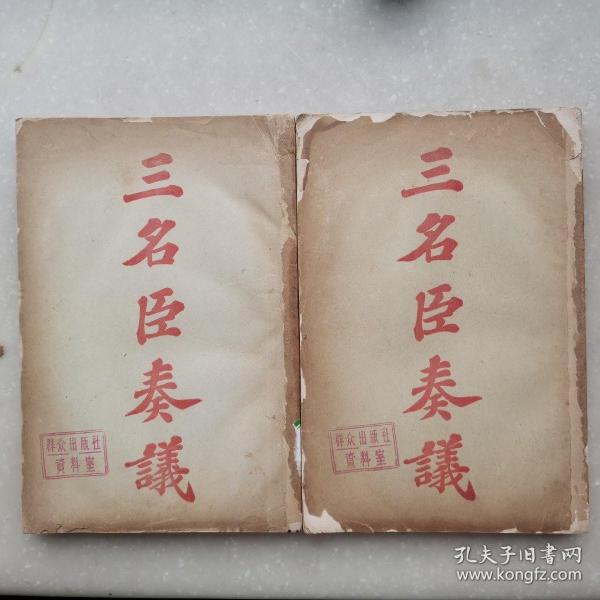 三名臣奏議
群众出版社
資料室
三名臣奏議
群众出版社
資料室
孔夫子旧書网
www.kongfz.com